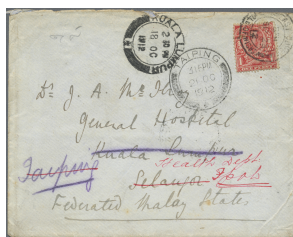 KUALA LUMPUR
2 30 PM
18 OC
1912
TAIPING
OC
1912
Dr. J. A. Mc
General Hospital
Kuala Lumpur
Health Dept
Taiping
Selangor Ipoh
Federated Malay States